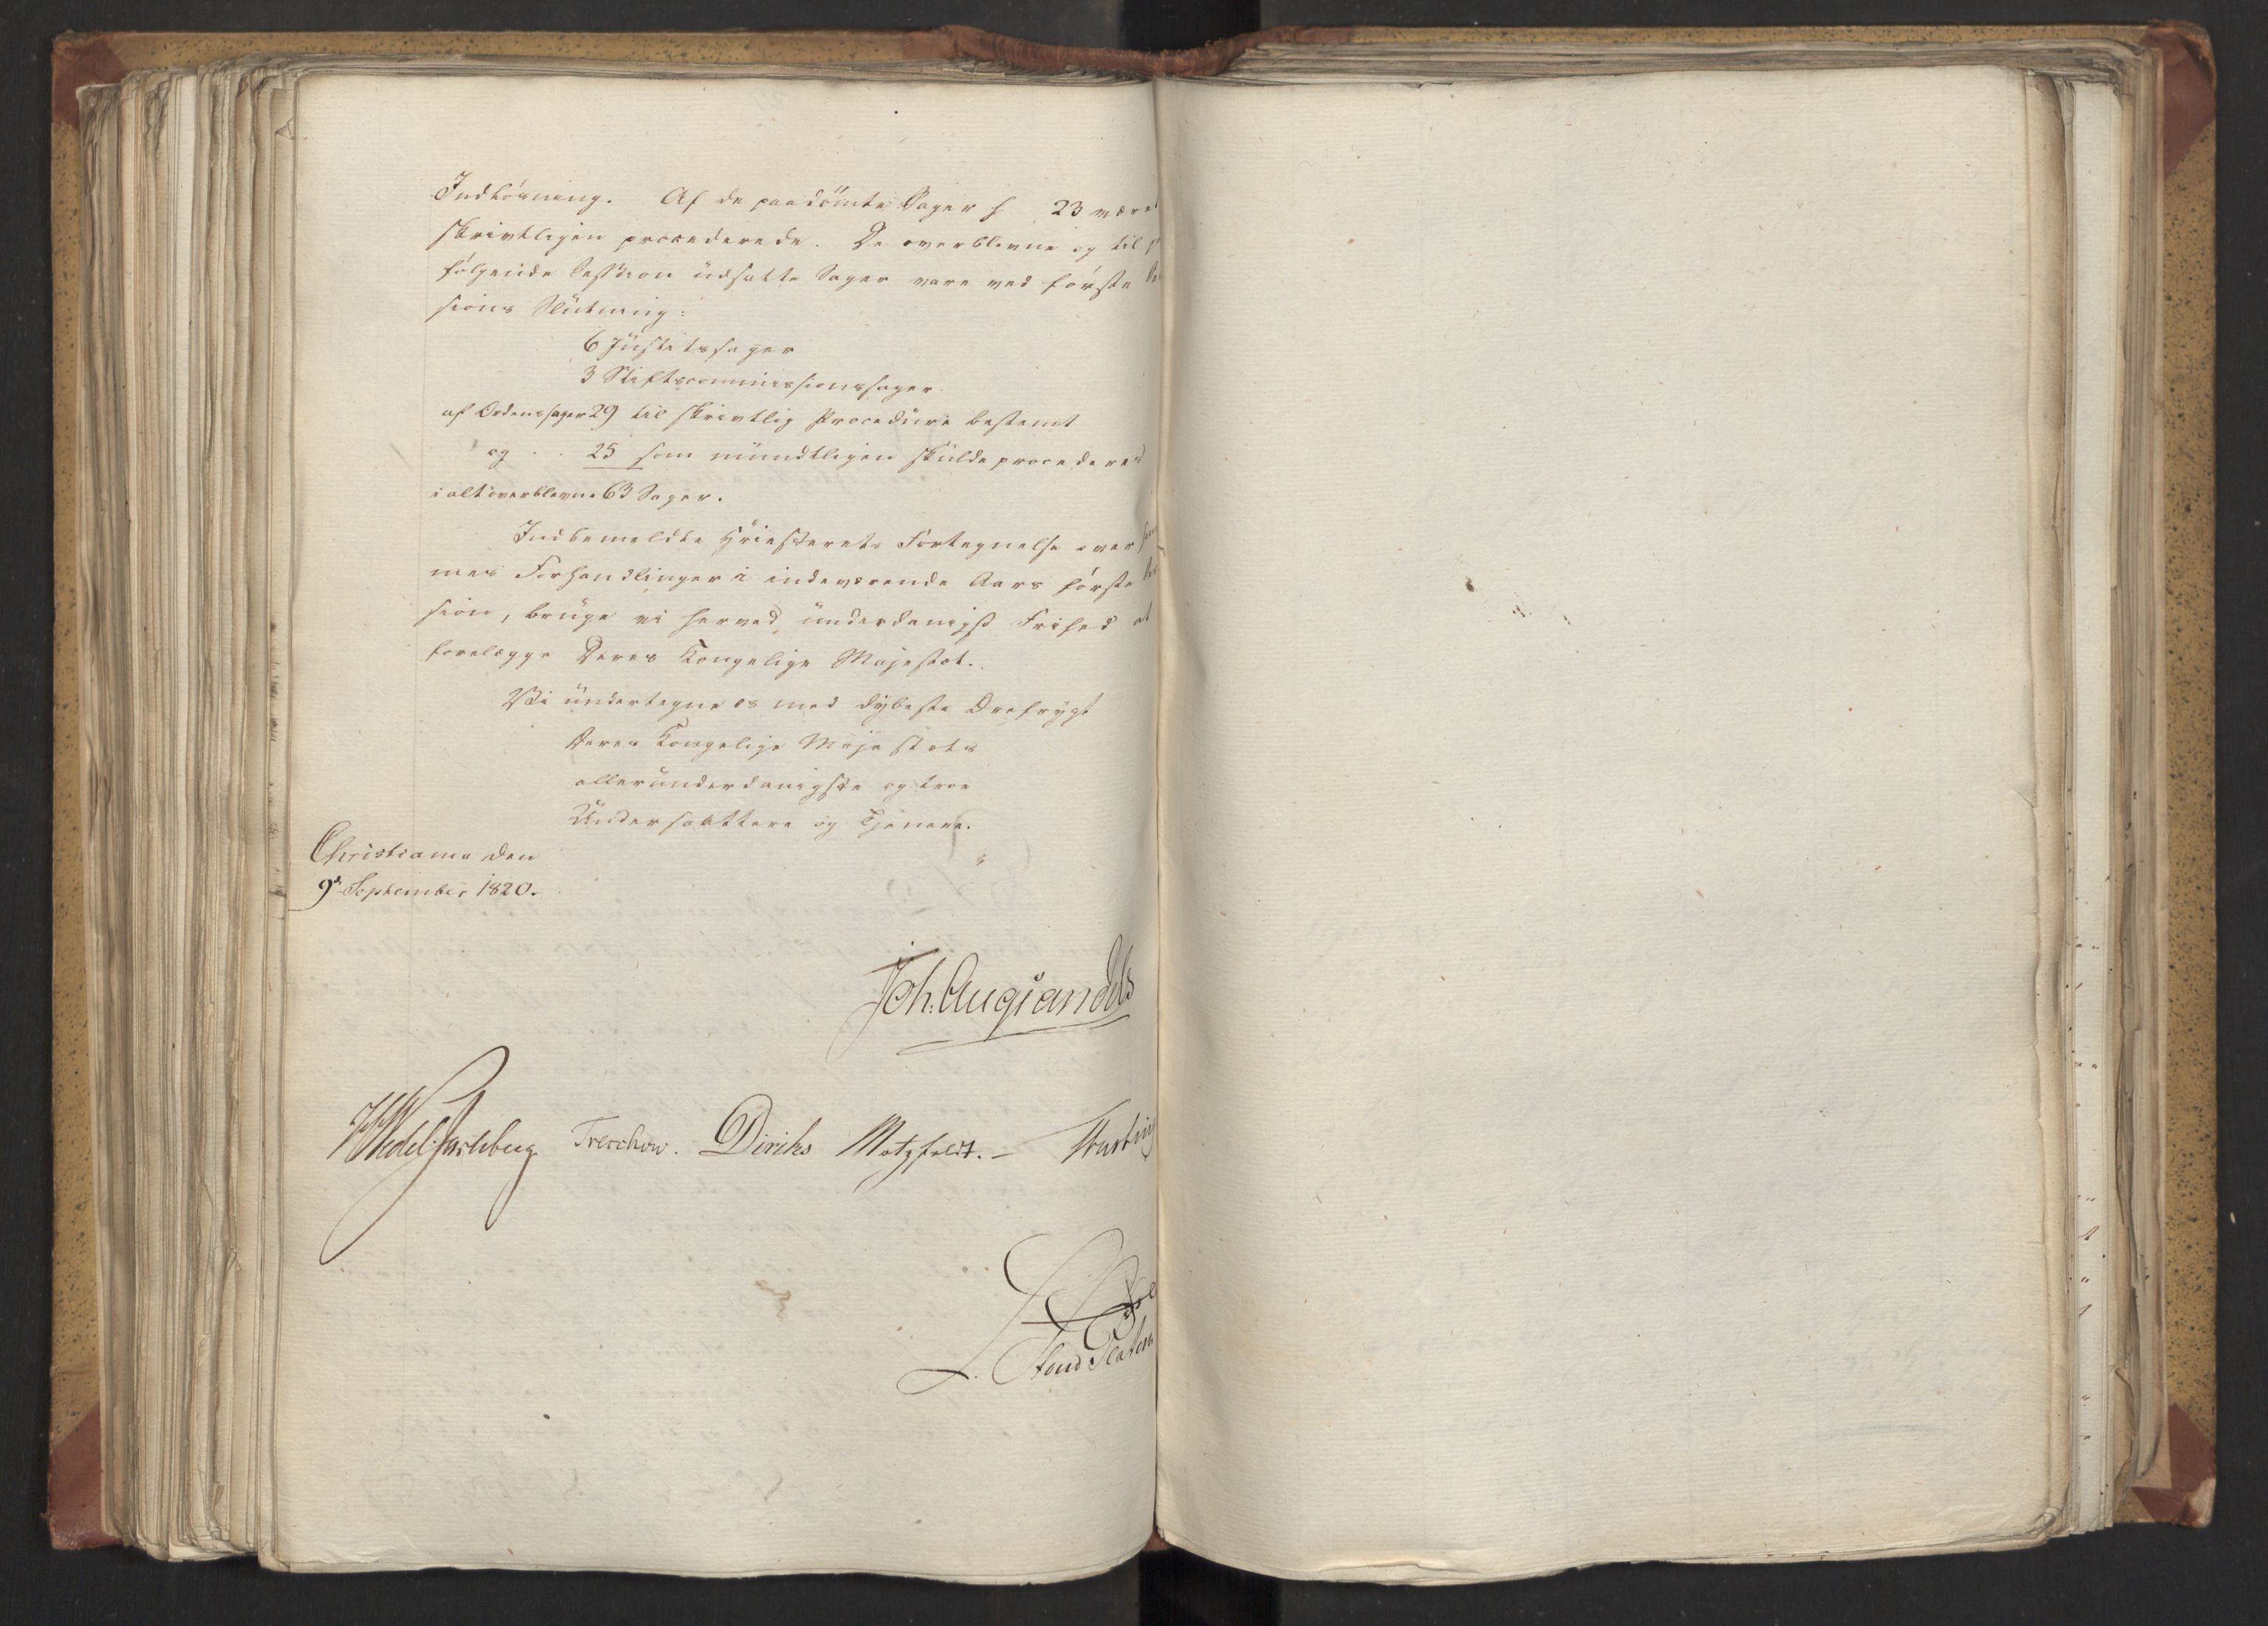 Indkörning. Af de paadömte Sager h 23 været
skrivtligen procederede. De overblevne og til
følgende Session udsatte Sager vare ved første Ses
sions Slutning:
6 Justitssager
3 Stiftscommissionssager
af Ordenssager 29 til skrivtlig Procedure bestemt
og . . 25 som mundtligen skulde procederes
i alt overblevne 63 Sager.
Indbemeldte Høiesterets Fortegnelse over sam
mes Forhandlinger i indeværende Aars første Ses
sion, bruge vi herved underdanigst Frihed at
forelægge Deres Kongelige Majestæt.
Vi undertegne os med dybeste Ærefrygt
Deres Kongelige Majestæts
allerunderdanigste og troe
Undersaattere og Tjenere.
Christiania den
9de September 1820.
Joh. Aug Sandels
HWedel Jarlsberg Treschow. Diriks Motzfeldt. – Fasting
L. Stoud Platou